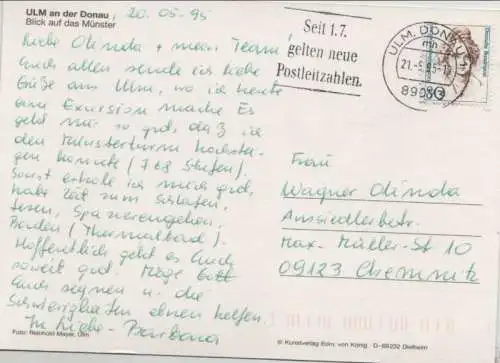 ULM an der Donau, 20.05-95
Blick auf das Münster
Liebe Olinda + mein Team,
Euch allen sende ich liebe
Grüße aus Ulm, wo ich heute
eine Exkursion mache. Es
geht mir so gut, daß ich
den Münsterturm hochstei-
gen konnte (768 Stufen).
Sonst erhole ich mich gut,
habe Zeit zum Schlafen,
Lesen, Spazierengehen,
Baden (Thermalbad).
Hoffentlich geht es Euch
soweit gut. Möge Gott
Euch segnen u. die
Schwierigkeiten einen helfen.
In Liebe - Barbara
Foto: Reinhold Mayer, Ulm
Seit 1.7.
gelten neue
Postleitzahlen.
ULM, DONAU 1
mn
21.-5.95-1
890
80
Deutsche Bundespost
Frau
Wagner Olinda
Aussiedlerbetr.
Max-Müller-St 10
09123 Chemnitz
© Kunstverlag Edm. von König · D-69232 Dielheim